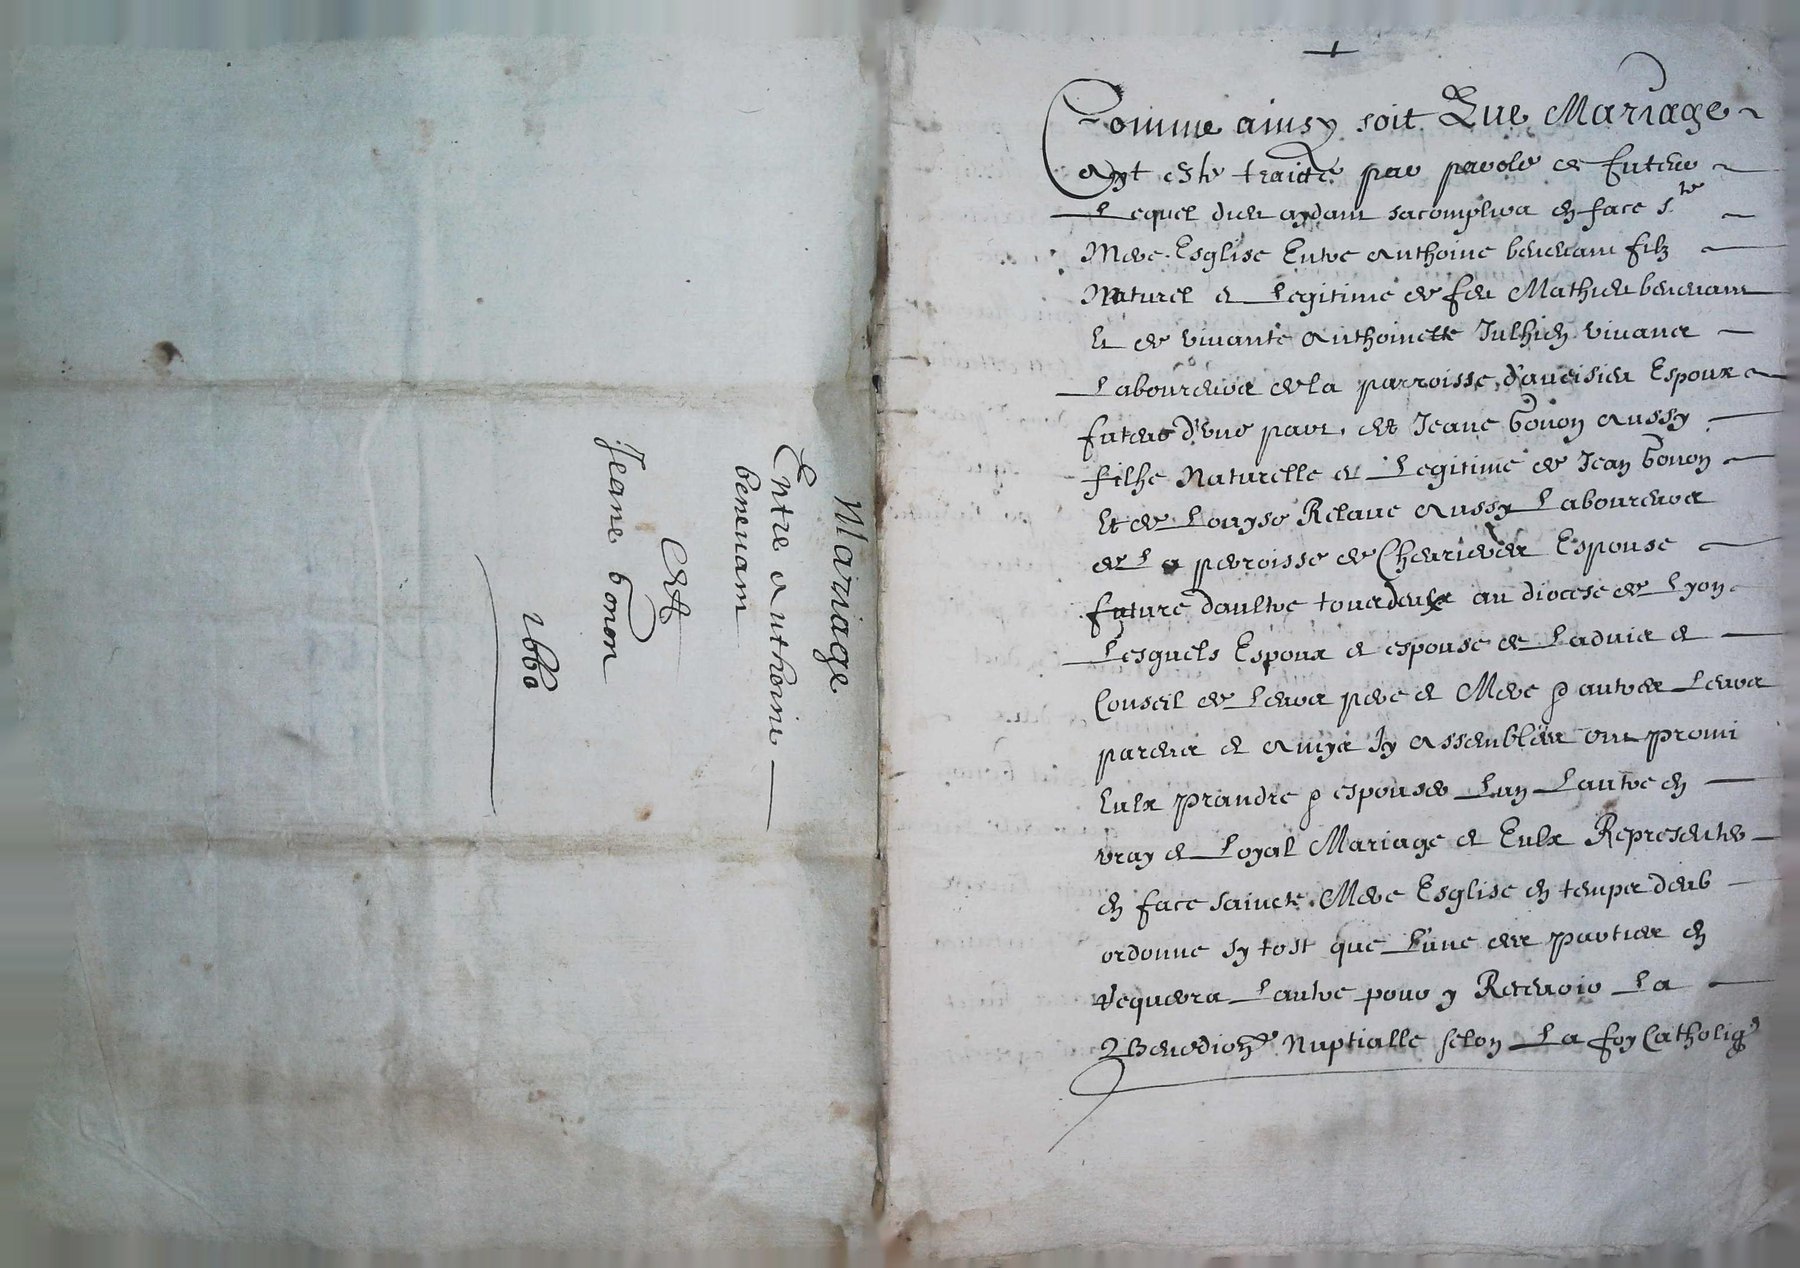 Mariage
Entre Anthoine
benevam
Et
Jeane bonon
1660
Comme ainsy soit Que Mariage
Ayt este traicte par parole de futeur
Lequel dieu aydant sacomplira en face s.te
Mere Esglise Entre Anthoine benevam filz
Naturel et Legitime de feu Mathieu benevam
Et de vivante Anthoinette Julhien vivans
Laboureurs de la parroisse d'aveisieu Espoux
futeur d'une part, et Jeane bonon Aussy
filhe Naturelle et Legitime de Jean bonon
Et de Louyse Relave Aussy Laboureurs
de La perroisse de Chevrieres Espouse
future daultre tous deulx au diocese de Lyon
Lesquels Espoux et espouse de Ladvis et
Conseil de Leurs pere et Mere & autres Leurs
parens et Amys Jy Assemblés ont promi
Eulx prandre & espouser Lun Lautre en
vray et Loyal Mariage et Eulx Representer
en face saincte Mere Esglise en temps deub
ordonne sy tost que L'une des parties en
requerra Lautre pour y Recevoir La
Benedion Nuptialle selon La foy Catholiq